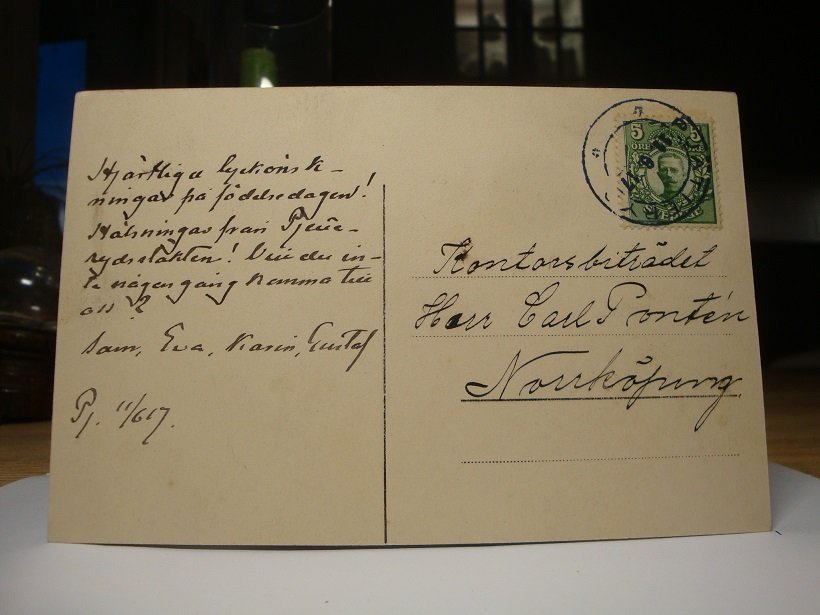 Hjärtliga lyckönsk-
ningar på födelsedagen!
Hälsningar från Pjäue-
rydssläkten! Vill du in-
te någon gång komma till
oss?
Sam, Eva, Karin, Gustaf
Pj. 11/6 17.
5 5
ÖRE ÖRE
SVERIGE
Kontorsbiträdet
Herr Carl Pontén
Norrköping